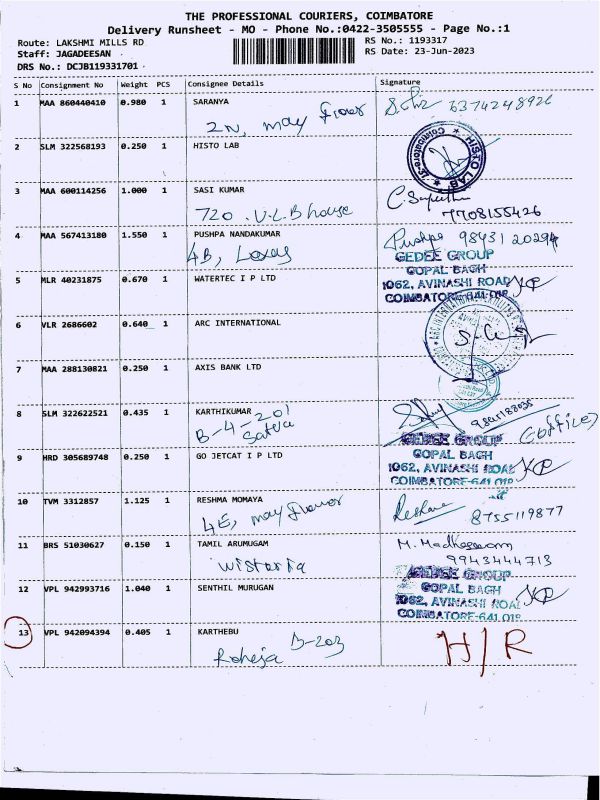 THE PROFESSIONAL COURIERS, COIMBATORE
Delivery Runsheet - MO - Phone No.:0422-3505555 - Page No.:1
Route: LAKSHMI MILLS RD
RS No.: 1193317
Staff: JAGADEESAN
RS Date: 23-Jun-2023
DRS No.: DCJB119331701
S No Consignment No Weight PCS Consignee Details Signature
1 MAA 860440410 0.980 1 SARANYA 6374248926
2N, may flower
2 SLM 322568193 0.250 1 HISTO LAB
HISTO LAB
3 MAA 600114256 1.000 1 SASI KUMAR
720. V.L.B house 7708155426
4 MAA 567413180 1.550 1 PUSHPA NANDAKUMAR Pushpa 98431 20294
4B,
GEDEE GROUP
GOPAL BAGH
5 MLR 40231875 0.670 1 WATERTEC I P LTD 1062, AVINASHI ROAD
COIMBATORE-641 018
6 VLR 2686602 0.640 1 ARC INTERNATIONAL
7 MAA 288130821 0.250 1 AXIS BANK LTD
8 SLM 322622521 0.435 1 KARTHIKUMAR
B-4-201 (office)
GEDEE GROUP
9 HRD 305689748 0.250 1 GO JETCAT I P LTD GOPAL BAGH
1062, AVINASHI ROAD
COIMBATORE-641 018
10 TVM 3312857 1.125 1 RESHMA MOMAYA
4E, may flower 8755119877
11 BRS 51030627 0.150 1 TAMIL ARUMUGAM
Wistaria 9943444713
GEDEE GROUP
12 VPL 942993716 1.040 1 SENTHIL MURUGAN GOPAL BAGH
1062, AVINASHI ROAD
COIMBATORE-641 018
13 VPL 942094394 0.405 1 KARTHEBU H/R
Raheja B-203